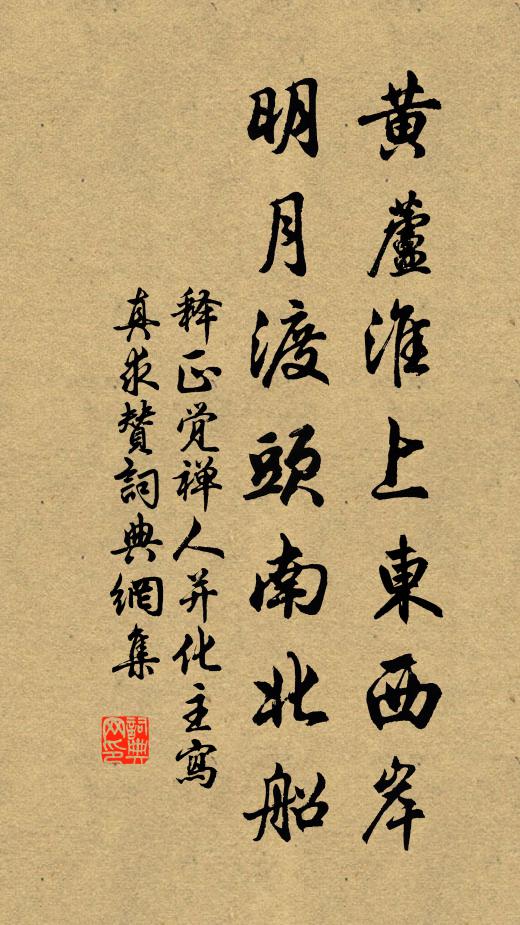 黄蘆淮上東西岸
明月渡頭南北船
释正覚禅人并化主寫
真求賛詞典網集
詞典网印